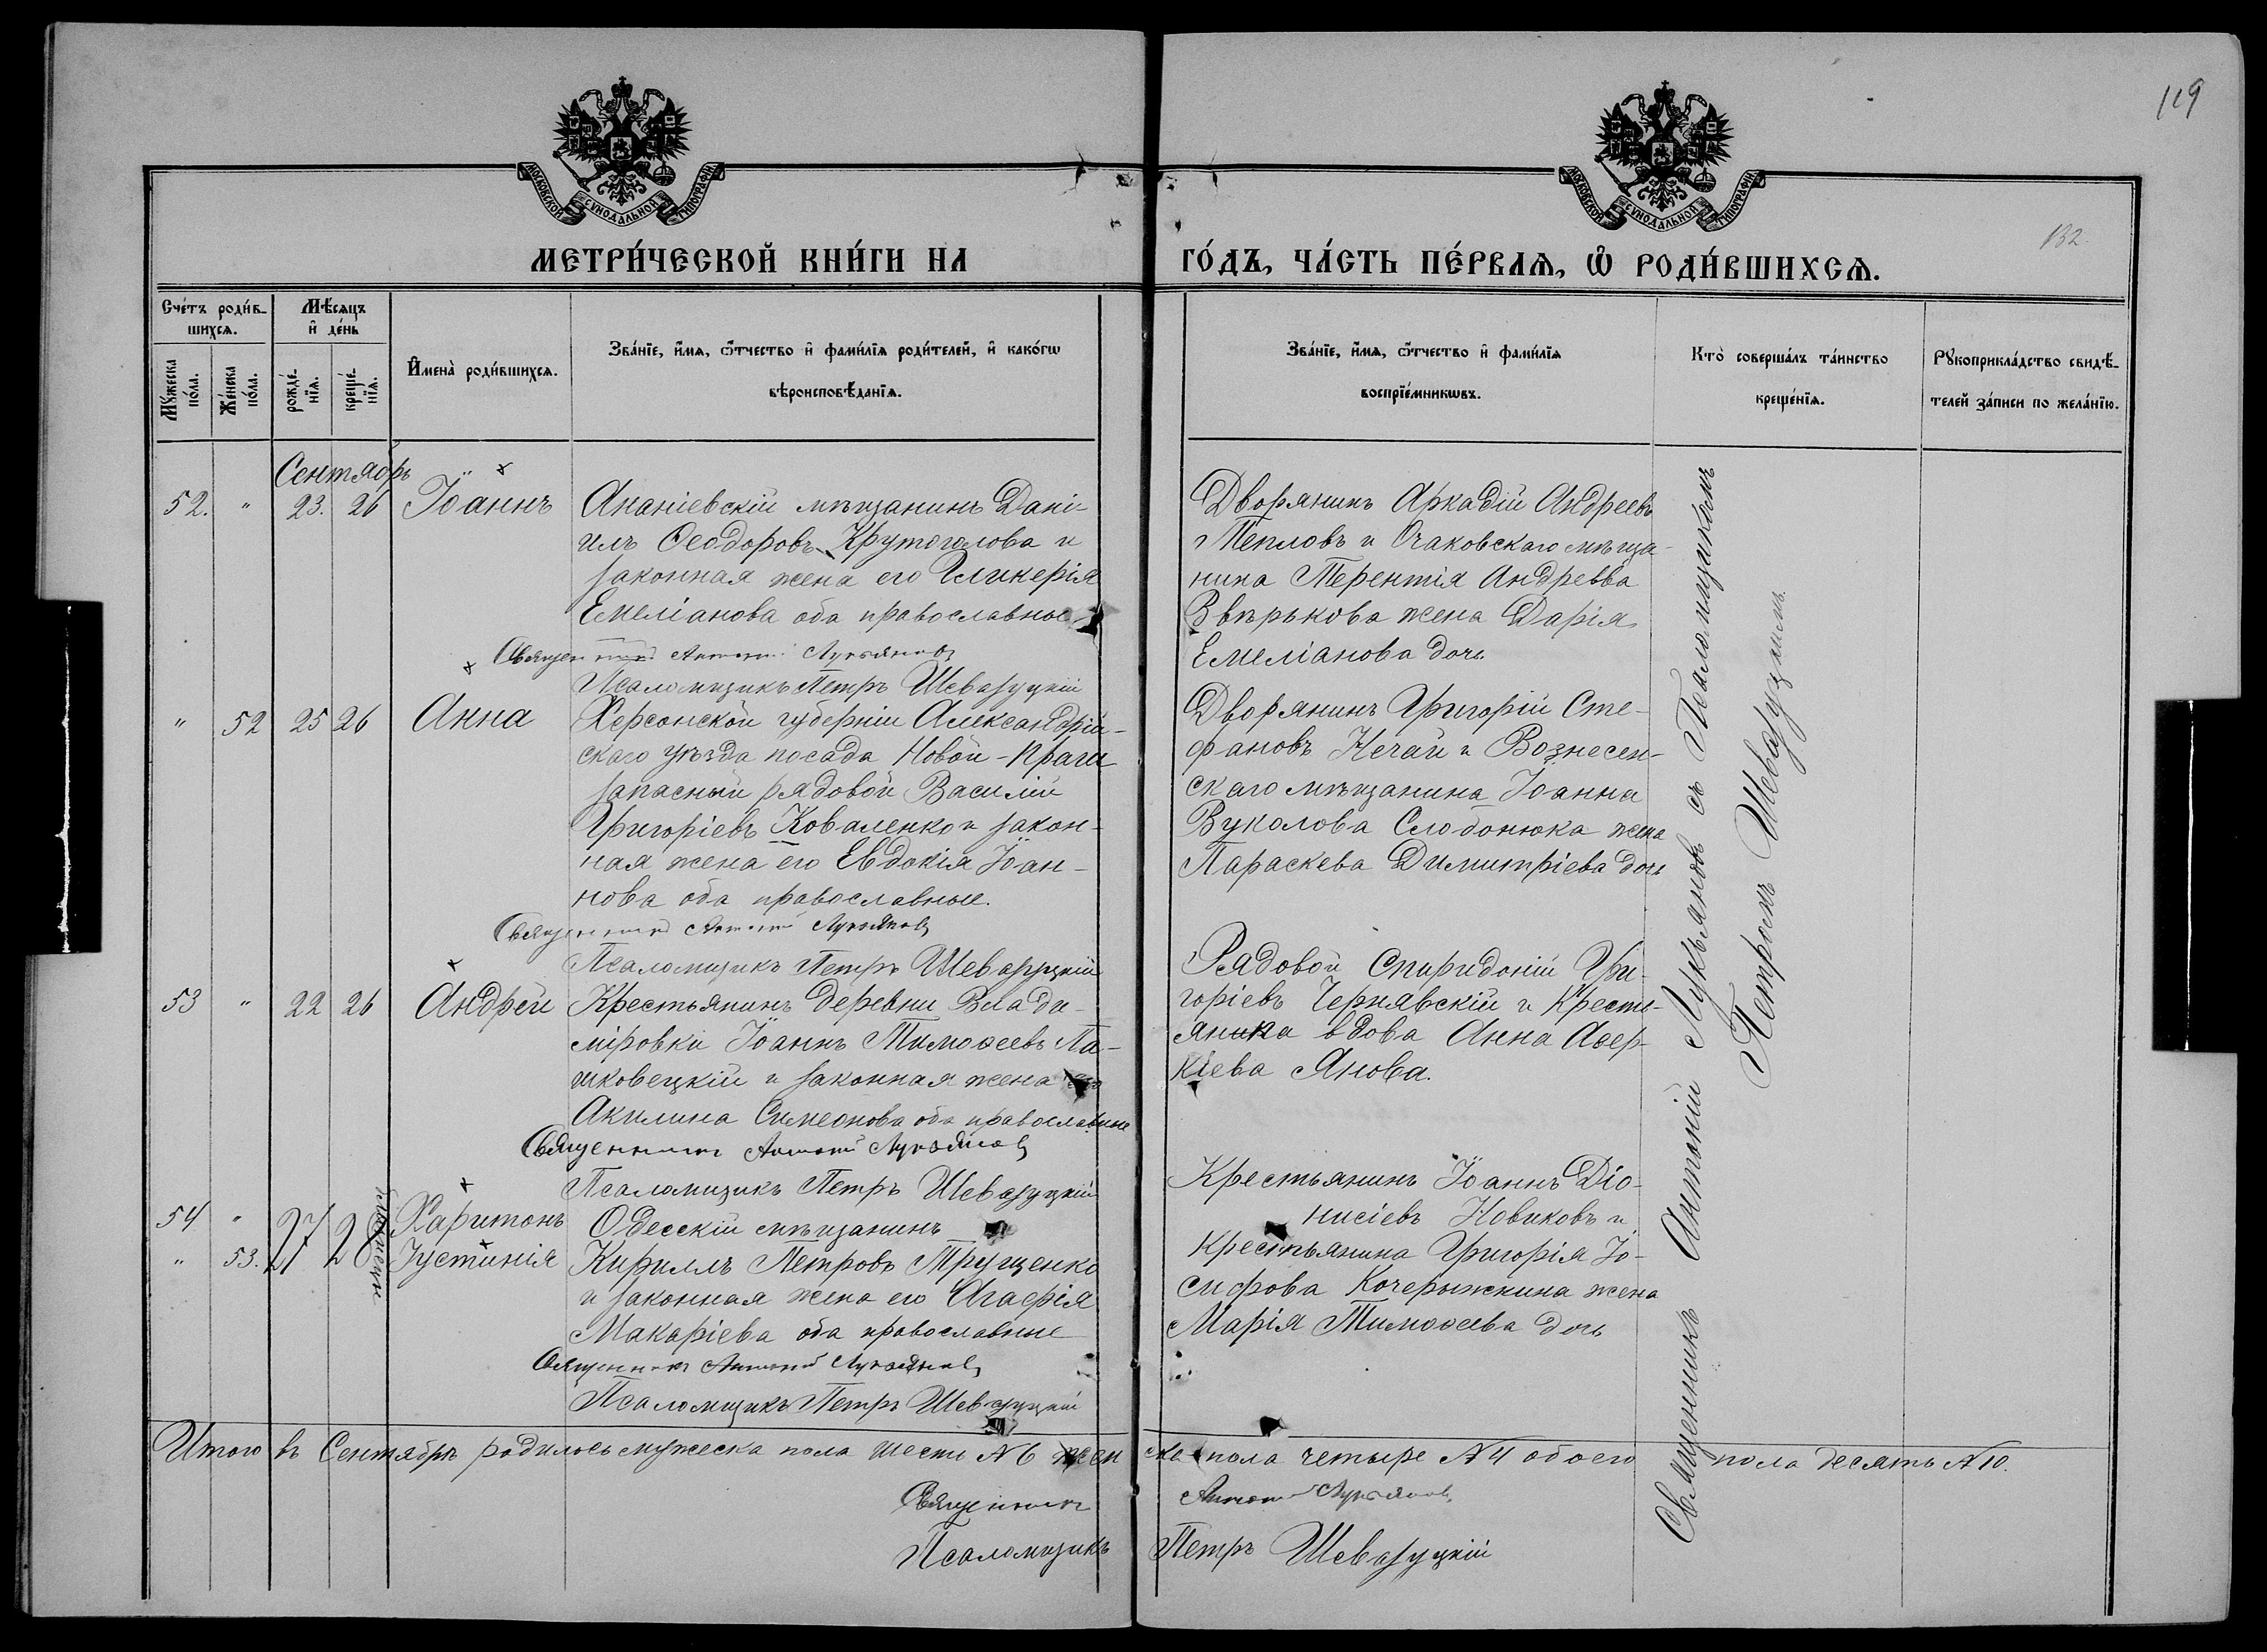 119
МОСКОВСКОЙ СѴНОДАЛЬНОЙ ТИПОГРАФІИ
МОСКОВСКОЙ СѴНОДАЛЬНОЙ ТИПОГРАФІИ
МЕТРИ́ЧЕСКОЙ КНИ́ГИ НА ГО́ДЪ, ЧА́СТЬ ПЕ́РВАѦ, Ѿ РОДИ́ВШИХСѦ.
132.
Сче́тъ роди́в-
шихсѧ.
Мꙋ́жеска
по́ла.
Же́нска
по́ла.
Мѣ́сѧцъ
и҆ де́нь
рожде́-
нїѧ.
креще́-
нїѧ.
И҆мена̀ роди́вшихсѧ.
Зва́нїе, и҆́мѧ, ѻ҆́тчество и҆ фами́лїѧ роди́телей, и҆ како́гѡ
вѣроисповѣ́данїѧ.
Зва́нїе, и҆́мѧ, ѻ҆́тчество и҆ фами́лїѧ
воспрїе́мникѡвъ.
Кто̀ соверша́лъ та́инство
креще́нїѧ.
Рꙋкоприкла́дство свидѣ́-
телей за́писи по жела́нїю.
Сентябрь
52. " 23. 26 Іоаннъ
Ананіевскій мѣщанинъ Дані-
илъ Ѳеодоровъ Крутоголова и
законная жена его Гликерія
Емеліанова оба православные
Священникъ Антоній Лукьяновъ
Псаломщикъ Петръ Шевазуцкій
Дворянинъ Аркадій Андреевъ
Тепловъ и Очаковскаго мѣща-
нина Терентія Андреева
Звѣрькова жена Дарія
Емеліанова дочь.
" 52 25 26 Анна
Херсонской губерніи Александрій-
скаго уѣзда посада Новой-Праги
запасный рядовой Василій
Григоріевъ Коваленко и закон-
ная жена его Евдокія Іоан-
нова оба православные.
Священникъ Антоній Лукьяновъ
Псаломщикъ Петръ Шевазуцкій
Дворянинъ Григорій Сте-
фановъ Нечай и Вознесен-
скаго мѣщанина Іоанна
Вуколова Слободнюка жена
Параскева Димитріева дочь
53 " 22 26 Андрей
Крестьянинъ деревни Влади-
міровки Іоаннъ Тимоѳеевъ Па-
шковецкій и законная жена его
Акилина Симеонова оба православные
Священникъ Антоній Лукьяновъ
Псаломщикъ Петръ Шевазуцкій
Рядовой Спиридоній Гри-
горіевъ Чернявскій и Кресть-
янка вдова Анна Авер-
кіева Янова.
54 " 27 28 Харитонъ
" 53. Іустинія
близнецы
Одесскій мѣщанинъ
Кириллъ Петровъ Трущенко
и законная жена его Агаѳія
Макаріева оба православные
Священникъ Антоній Лукьяновъ
Псаломщикъ Петръ Шевазуцкій
Крестьянинъ Іоаннъ Діо-
нисіевъ Новиковъ и
Крестьянина Григорія Іо-
сифова Кочерыжкина жена
Марія Тимоѳеева дочь
Священникъ Антоній Лукьяновъ съ Псаломщикомъ
Петромъ Шевазуцкимъ.
Итого въ Сентябрѣ родилось мужеска пола шесть N 6 женска пола четыре N 4 обоего пола десять N 10.
Священникъ Антоній Лукьяновъ
Псаломщикъ Петръ Шевазуцкій